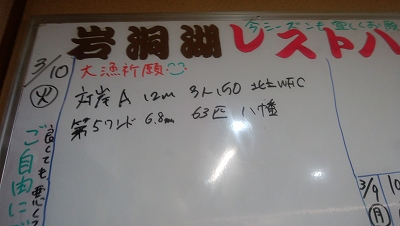 今シーズンも宜しくお願
岩洞湖レストハ
3/10
火
大漁祈願
対岸A 12m 3人150 北上WFC
第5ワンド 6.8m 63匹 八幡
宜しくても悪くて
ご自由に
3/9 10
月